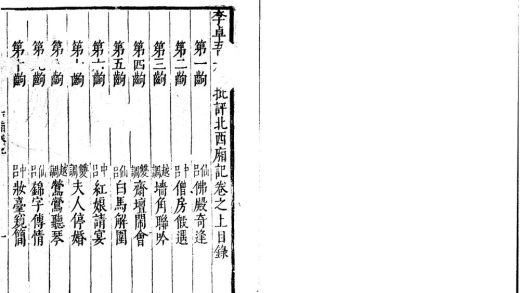 李卓吾 批評北西廂記卷之上目錄
第一齣 仙呂 佛殿奇逢
第二齣 中呂 僧房假遇
第三齣 越調 墻角聯吟
第四齣 雙調 齋壇鬧會
第五齣 仙呂 白馬解圍
第六齣 中呂 紅娘請宴
第七齣 雙調 夫人停婚
第八齣 越調 鶯鶯聽琴
第九齣 仙呂 錦字傳情
第十齣 中呂 妝臺窺簡